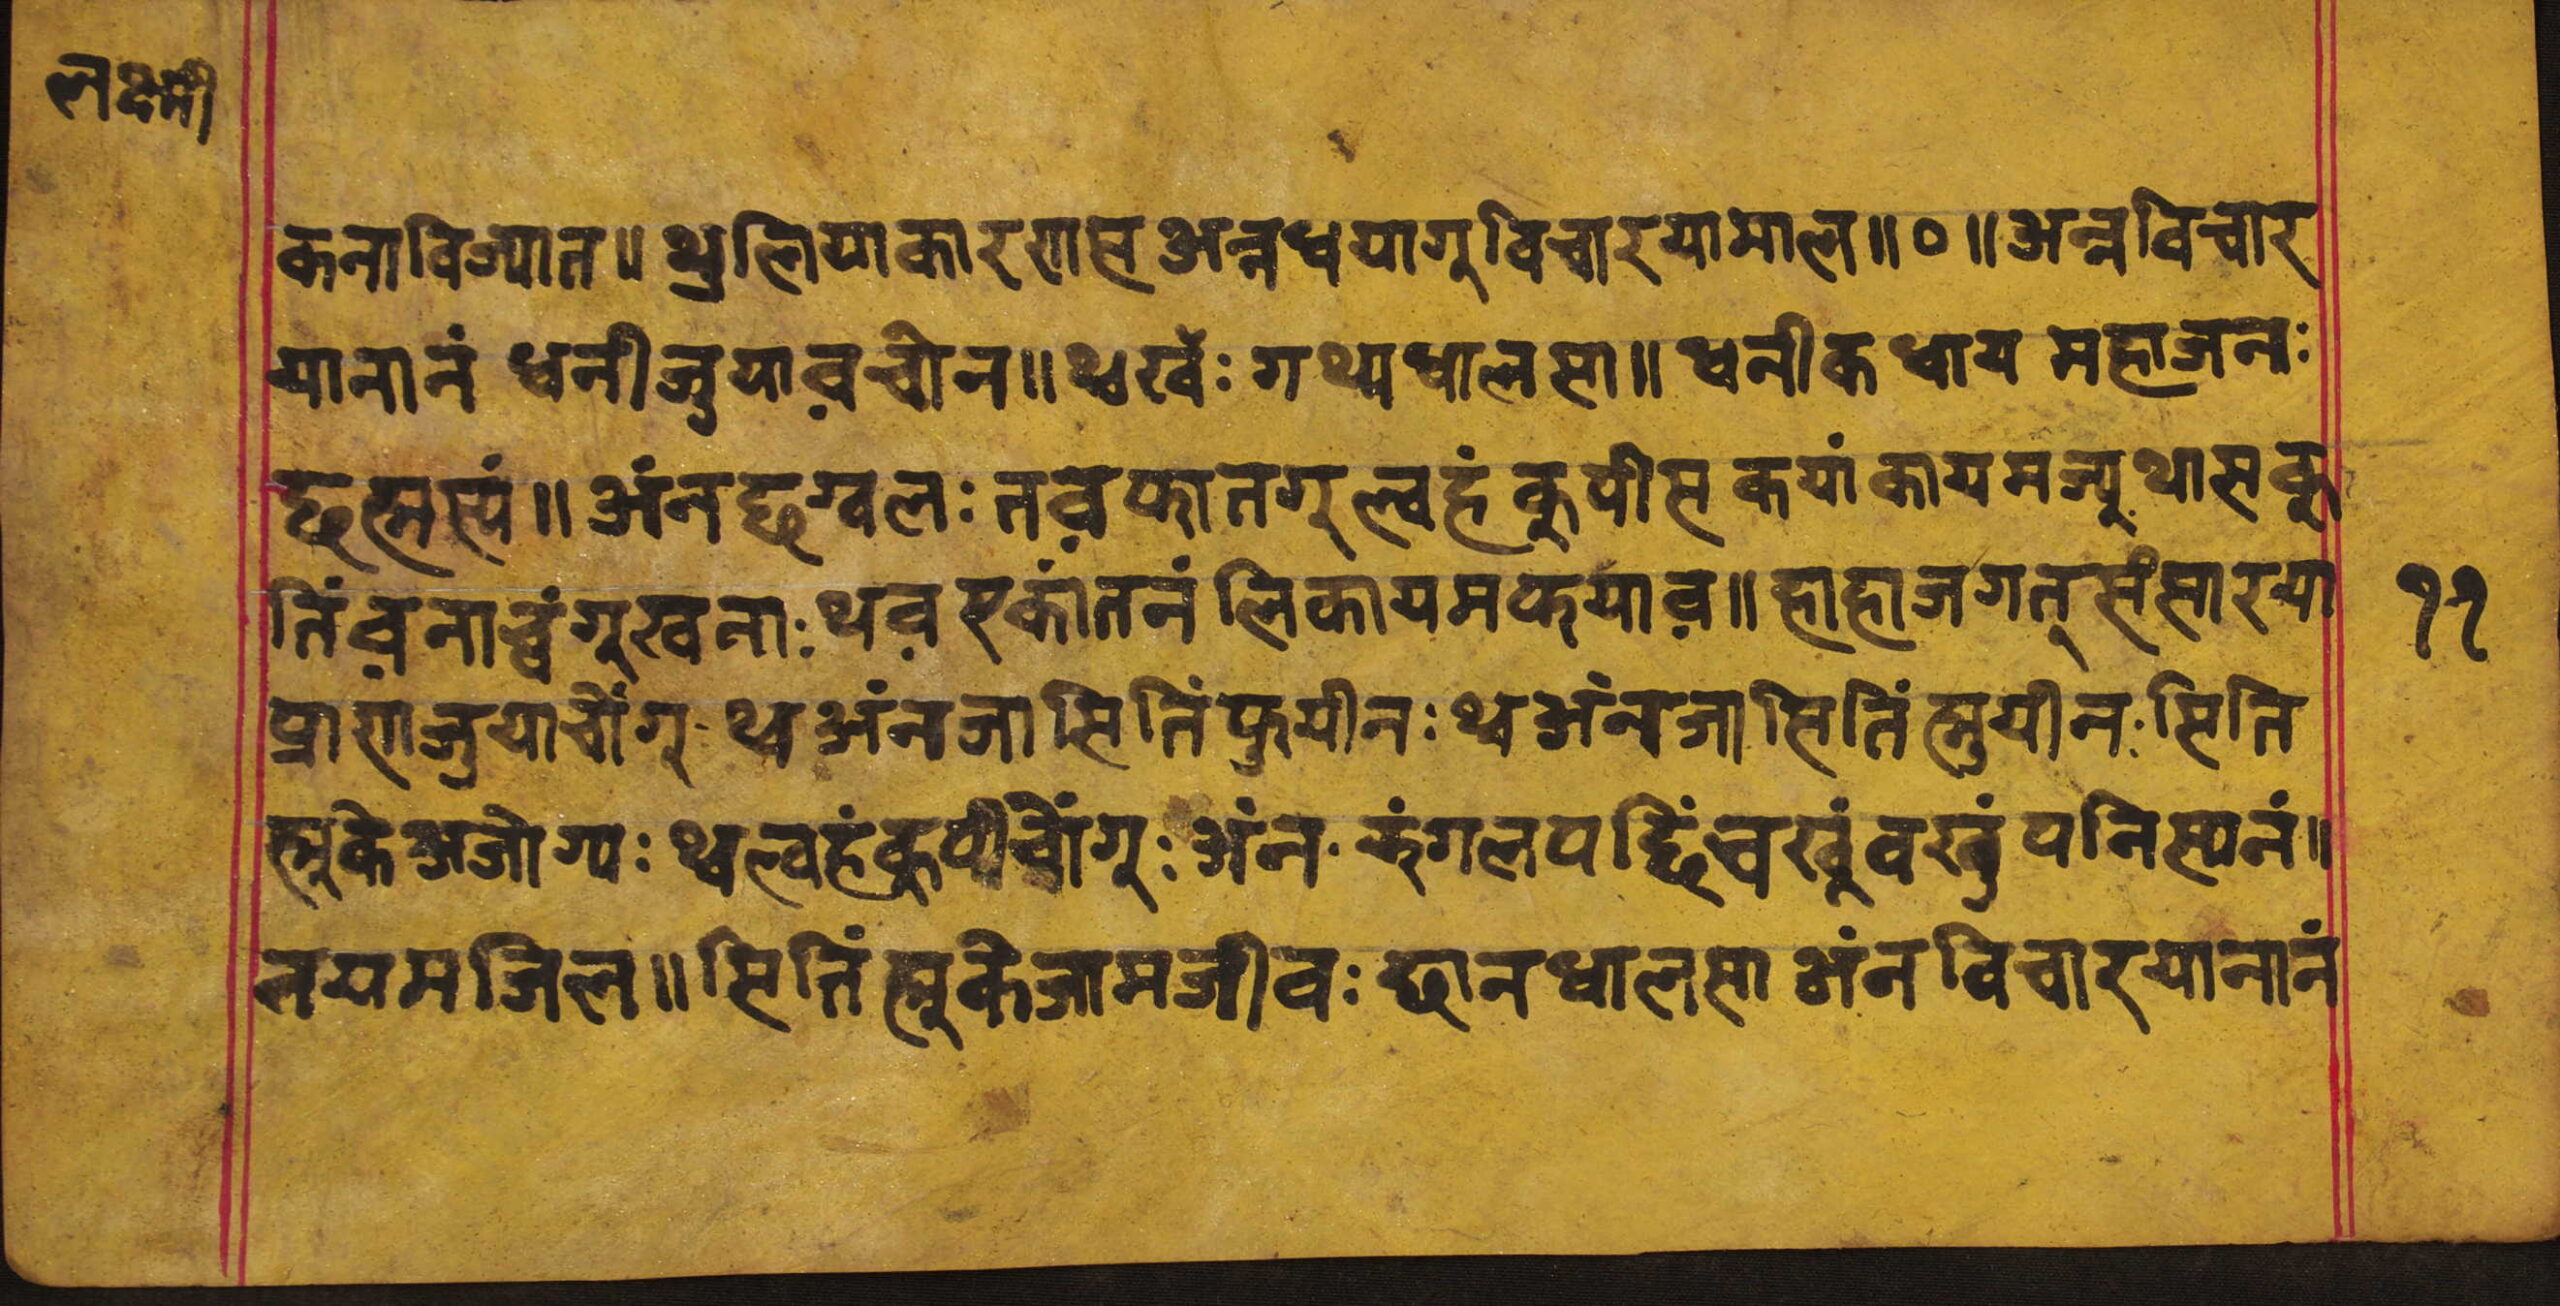 लक्ष्मी
कनाविज्यात॥ थुलियाकारणस अन्नधयागु विचारयामाल॥०॥ अन्नविचार
यानानं धनीजुयाव़चोन॥ थ्वखँः गथ्यधालसा॥ धनीकधाय महाजनः
छह्मस्यं॥ अंनछग्वलः तव़फातगु ल्वहं कुपीस कयां कायमज्यू थासकू
तिंव़नाच्वंगूखनाः थव़ह्कांतनं लिकायमफयाव़॥ हाहाजगत् संसारया
प्राणजुयाचोंगू थ्वअंनजा सितिं फुयीनः थ्वअंनजा सितिं ह्मुयीनः सिति
ह्मुके अजोग्यः थ्वल्वहंकुपीचोंगूः अंन झंगलपछिंचखुंवखुं पनिस्यनं॥
नयमजिल॥ सितिं ह्मुकेजामजीवः छानधालसा अंन विचारयानानं
११